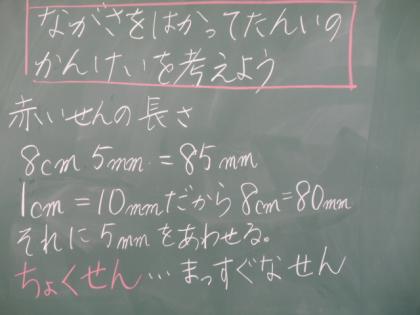 ながさをはかってたんいの
かんけいを考えよう
赤いせんの長さ
8cm 5mm = 85mm
1cm = 10mmだから 8cm=80mm
それに5mmをあわせる。
ちょくせん…まっすぐなせん